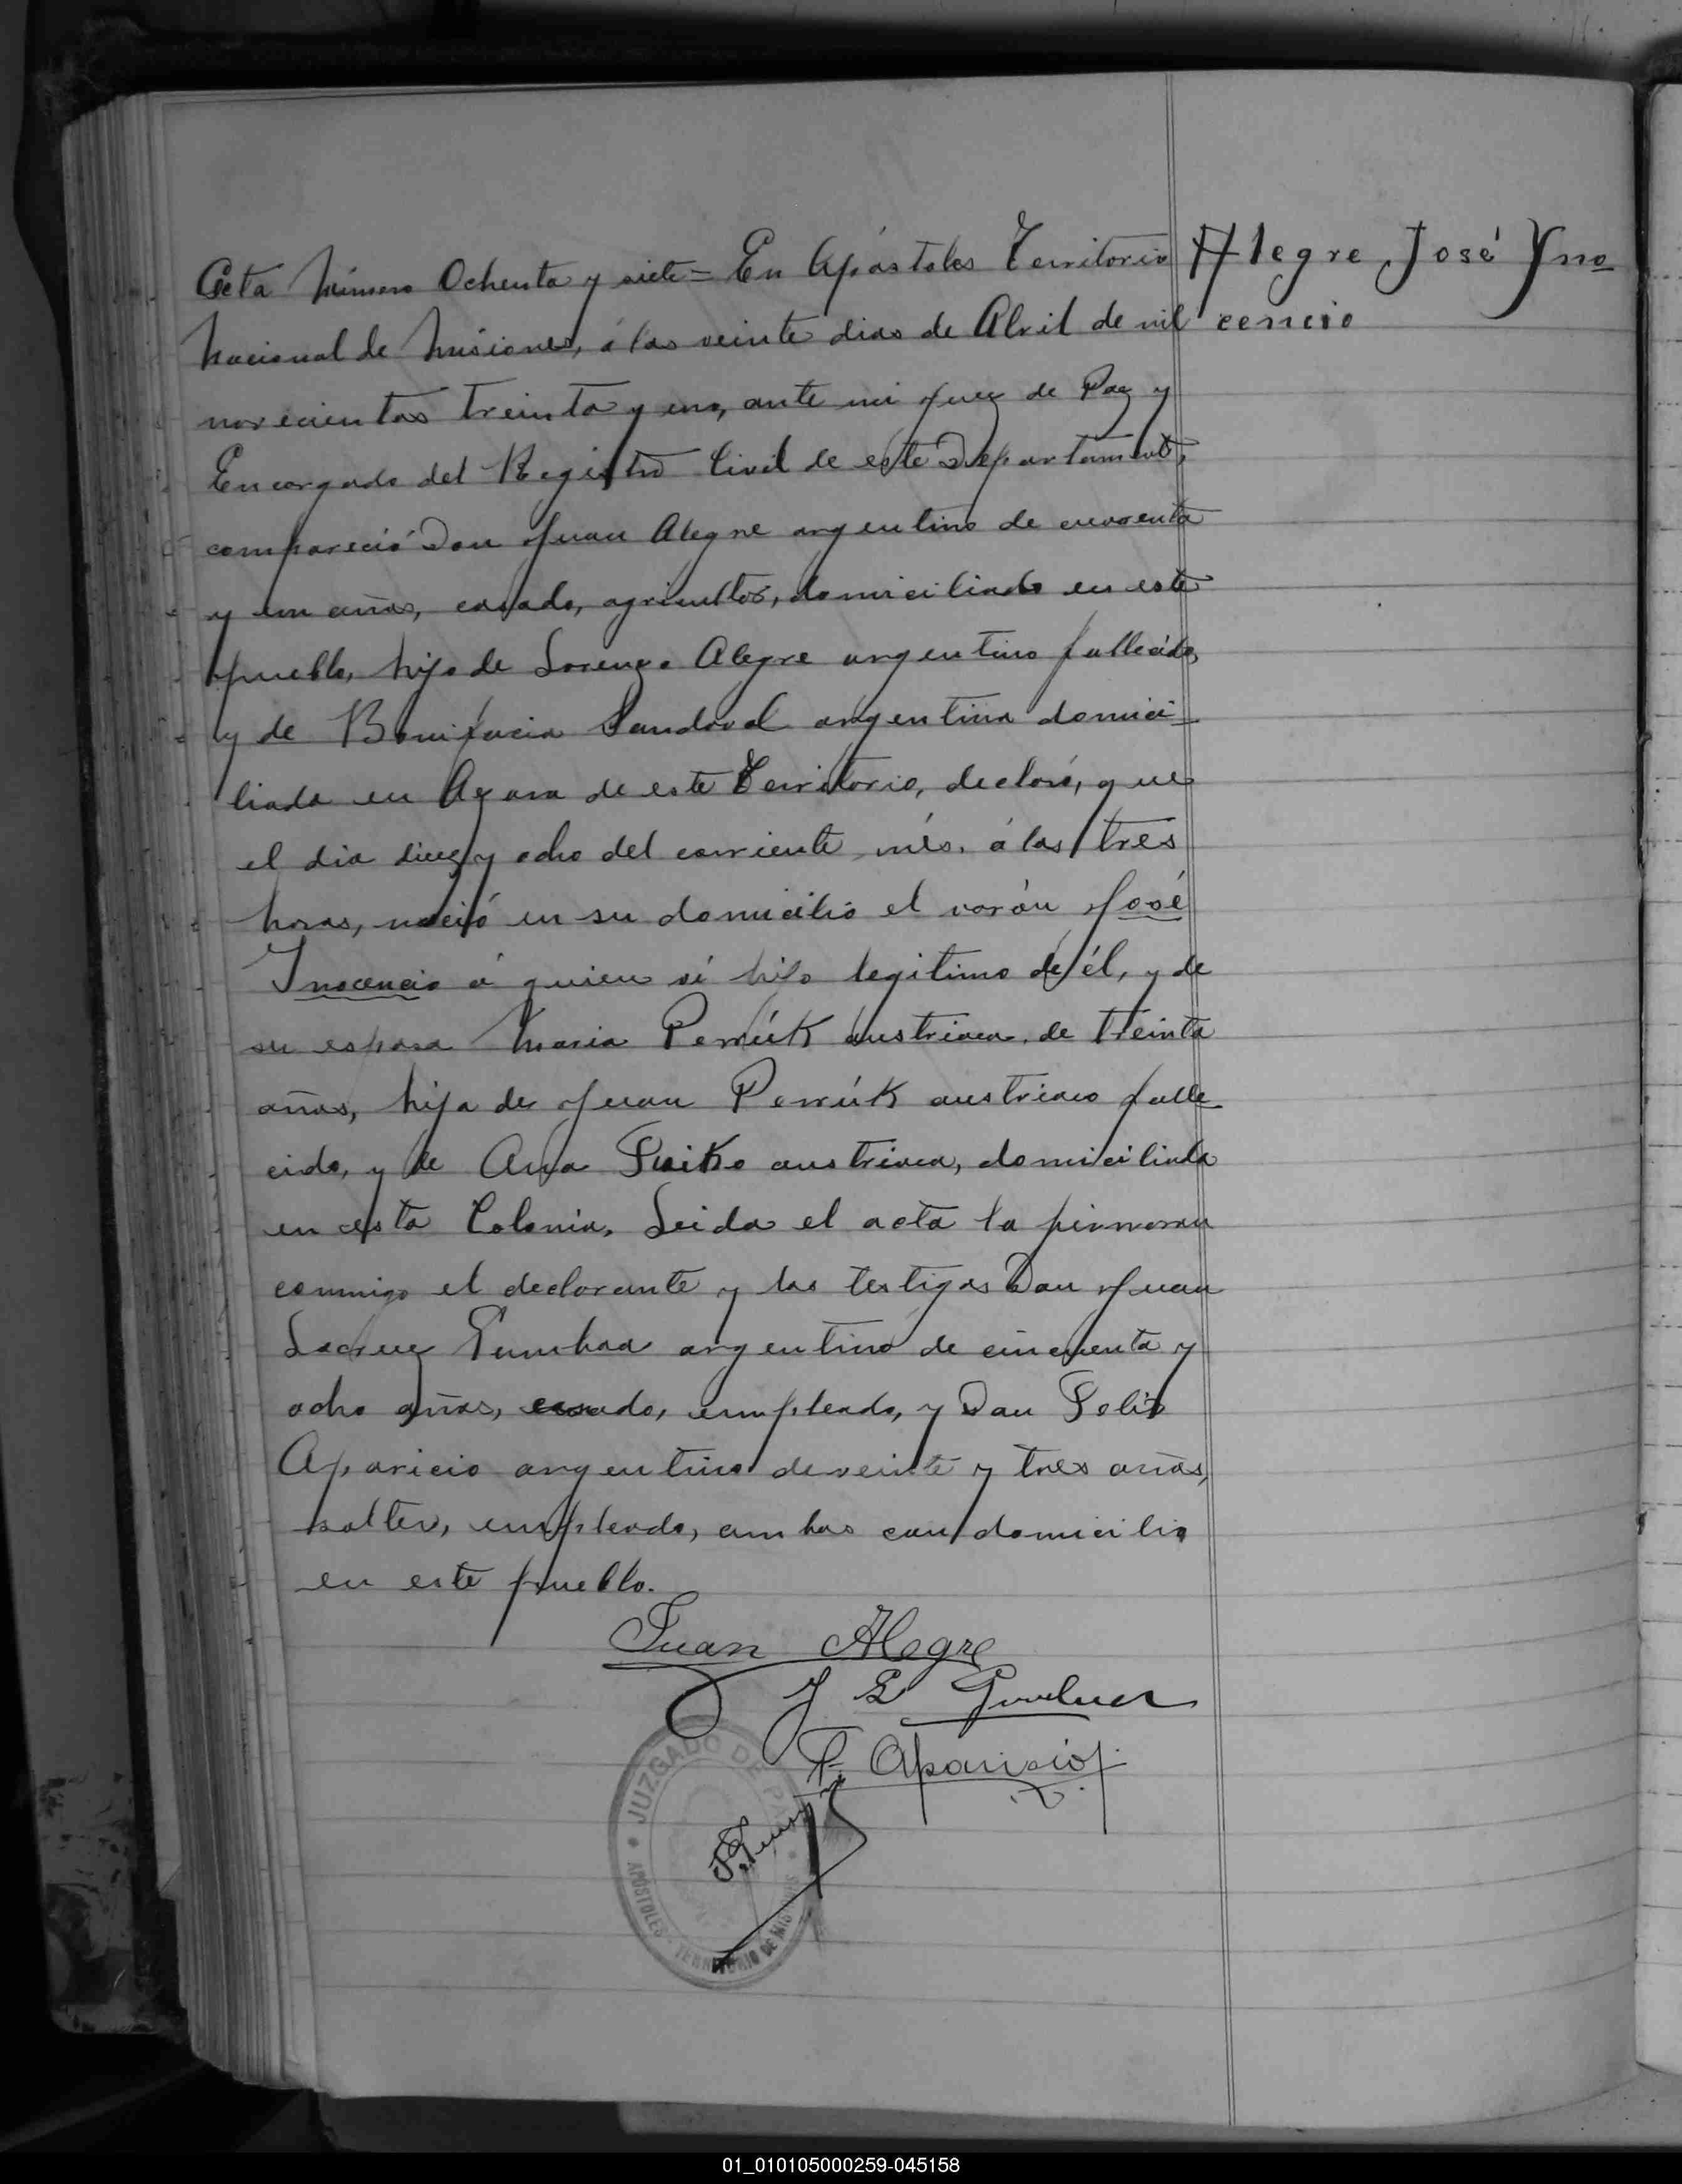 Acta Número Ochenta y siete = En Apóstoles Territorio
Alegre José Yno
Nacional de Misiones, á los veinte dias de Abril de mil
cencio
novecientos treinta y uno, ante mi Juez de Paz y
Encargado del Registro Civil de este Departamento,
compareció Don Juan Alegre argentino de cuarenta
y un años, casado, agricultor, domiciliado en este
pueblo, hijo de Lorenzo Alegre argentino fallecido,
y de Bonifacia Sandoval argentina domici-
liada en Azara de este Territorio, declaró, que
el dia diez y ocho del corriente més. á las tres
horas, nació en su domicilio el varón José
Inocencio á quien ví hijo legitimo de él, y de
su esposa Maria austriaca, de treinta
años, hija de Juan austriaco falle
cido, y de Ana austriaca, domiciliada
en esta Colonia, Leida el acta la firmaron
conmigo el declarante y los testigos Don Juan
argentino de cincuenta y
ocho años, casado, empleado, y Don Felix
Aparicio argentino de veinte y tres años,
solter, empleado, ambos con domicilio
en este pueblo.
Juan Alegre
J L
F. Aparicio
JUZGADO DE PAZ
APÓSTOLES - TERRITORIO DE MISIONES
01_010105000259-045158